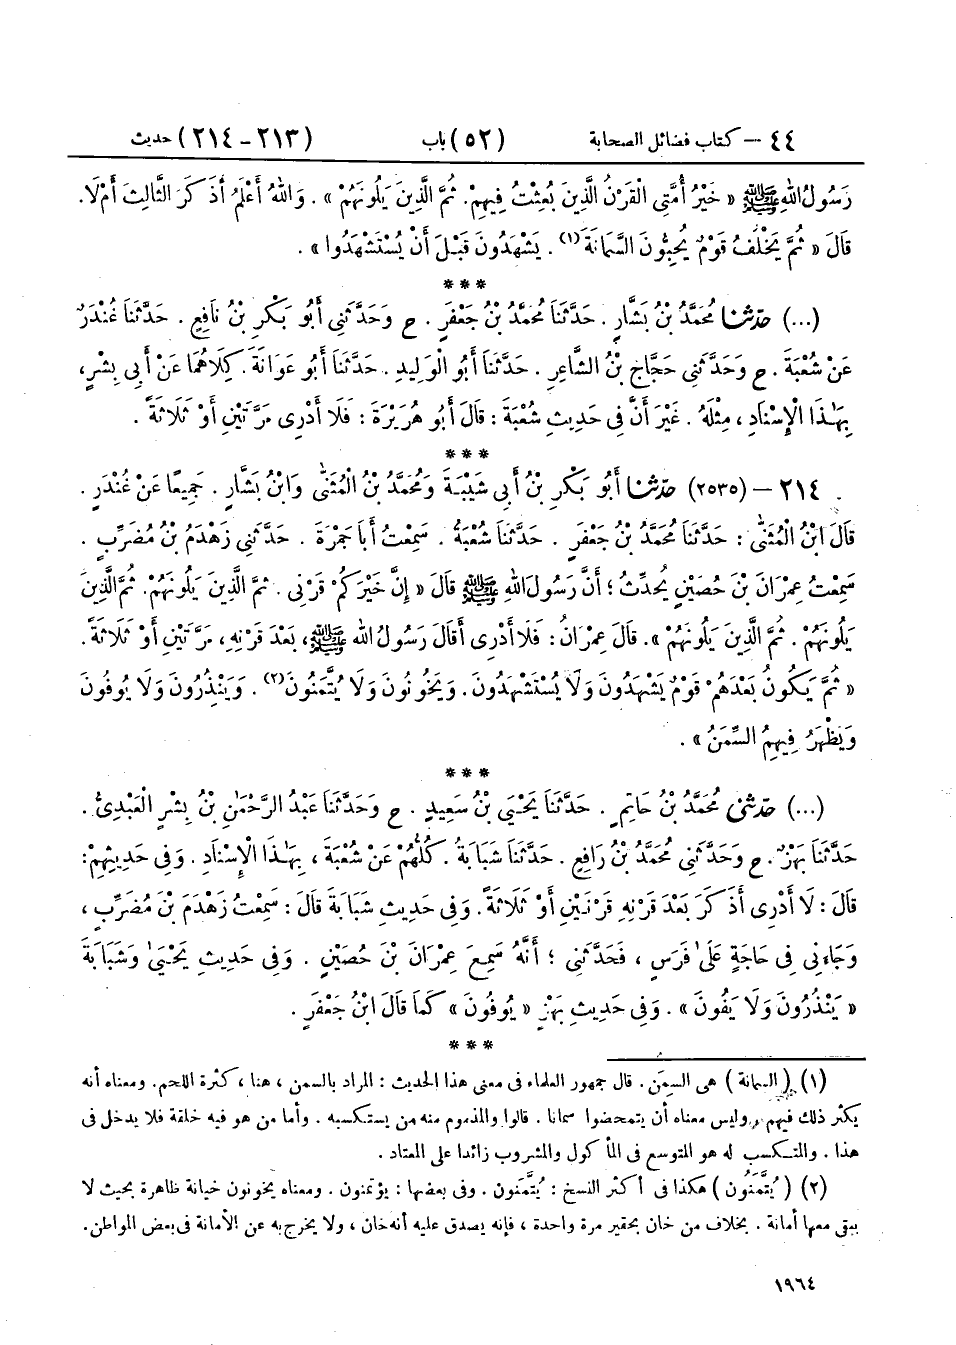 ٤٤ – كتاب فضائل الصحابة (٥٢) باب (٢١٣ – ٢١٤) حديث
رَسُولُ اللهِ ﷺ « خَيْرُ أُمَّتِي الْقَرْنُ الَّذِينَ بُعِثْتُ فِيهِمْ. ثُمَّ الَّذِينَ يَلُونَهُمْ » . وَاللهُ أَعْلَمُ أَذَكَرَ الثَّالِثَ أَمْ لَا.
قَالَ « ثُمَّ يَخْلُفُ قَوْمٌ يُحِبُّونَ السَّمَانَةَ(١) . يَشْهَدُونَ قَبْلَ أَنْ يُسْتَشْهَدُوا » .
* * *
(...) حدّثنا مُحَمَّدُ بْنُ بَشَّارٍ . حَدَّثَنَا مُحَمَّدُ بْنُ جَعْفَرٍ . ح وَحَدَّثَنِي أَبُو بَكْرِ بْنُ نَافِعٍ . حَدَّثَنَا غُنْدَرٌ
عَنْ شُعْبَةَ . ح وَحَدَّثَنِي حَجَّاجُ بْنُ الشَّاعِرِ . حَدَّثَنَا أَبُو الْوَلِيدِ . حَدَّثَنَا أَبُو عَوَانَةَ . كِلَاهُمَا عَنْ أَبِي بِشْرٍ،
بِهَـٰذَا الْإِسْنَادِ ، مِثْلَهُ . غَيْرَ أَنَّ فِي حَدِيثِ شُعْبَةَ : قَالَ أَبُو هُرَيْرَةَ : فَلَا أَدْرِى مَرَّتَيْنِ أَوْ ثَلَاثَةً .
* * *
٢١٤ – (٢٥٣٥) حدّثنا أَبُو بَكْرِ بْنُ أَبِي شَيْبَةَ وَمُحَمَّدُ بْنُ الْمُثَنَّىٰ وَابْنُ بَشَّارٍ . جَمِيعًا عَنْ غُنْدَرٍ .
قَالَ ابْنُ الْمُثَنَّىٰ : حَدَّثَنَا مُحَمَّدُ بْنُ جَعْفَرٍ . حَدَّثَنَا شُعْبَةُ . سَمِعْتُ أَبَا جَمْرَةَ . حَدَّثَنِي زَهْدَمُ بْنُ مُضَرِّبٍ .
سَمِعْتُ عِمْرَانَ بْنَ حُصَيْنٍ يُحَدِّثُ ؛ أَنَّ رَسُولَ اللهِ ﷺ قَالَ « إِنَّ خَيْرَكُمْ قَرْنِي . ثُمَّ الَّذِينَ يَلُونَهُمْ. ثُمَّ الَّذِينَ
يَلُونَهُمْ . ثُمَّ الَّذِينَ يَلُونَهُمْ ». قَالَ عِمْرَانُ : فَلَا أَدْرِى أَقَالَ رَسُولُ اللهِ ﷺ، بَعْدَ قَرْنِهِ، مَرَّتَيْنِ أَوْ ثَلَاثَةً.
« ثُمَّ يَكُونُ بَعْدَهُمْ قَوْمٌ يَشْهَدُونَ وَلَا يُسْتَشْهَدُونَ. وَيَخُونُونَ وَلَا يُتَّمَنُونَ(٢) . وَيَنْذُرُونَ وَلَا يُوفُونَ
وَيَظْهَرُ فِيهِمُ السِّمَنُ » .
* * *
(...) حدّثنى مُحَمَّدُ بْنُ حَاتِمٍ . حَدَّثَنَا يَحْيَىٰ بْنُ سَعِيدٍ . ح وَحَدَّثَنَا عَبْدُ الرَّحْمَـٰنِ بْنُ بِشْرٍ الْعَبْدِىُّ .
حَدَّثَنَا بَهْزٌ . ح وَحَدَّثَنِي مُحَمَّدُ بْنُ رَافِعٍ . حَدَّثَنَا شَبَابَةُ . كُلُّهُمْ عَنْ شُعْبَةَ ، بِهَـٰذَا الْإِسْنَادِ . وَفِي حَدِيثِهِمْ:
قَالَ : لَا أَدْرِى أَذَكَرَ بَعْدَ قَرْنِهِ قَرْنَيْنِ أَوْ ثَلَاثَةً. وَفِي حَدِيثِ شَبَابَةَ قَالَ : سَمِعْتُ زَهْدَمَ بْنَ مُضَرِّبٍ ،
وَجَاءَنِي فِي حَاجَةٍ عَلَىٰ فَرَسٍ ، فَحَدَّثَنِي ؛ أَنَّهُ سَمِعَ عِمْرَانَ بْنَ حُصَيْنٍ . وَفِي حَدِيثِ يَحْيَىٰ وَشَبَابَةَ
« يَنْذُرُونَ وَلَا يَفُونَ » . وَفِي حَدِيثِ بَهْزٍ « يُوفُونَ » كَمَا قَالَ ابْنُ جَعْفَرٍ .
* * *
(١) ( السمانة ) هى السمَن . قال جمهور العلماء فى معنى هذا الحديث : المراد بالسمن ، هنا ، كثرة اللحم. ومعناه أنه
يكثر ذلك فيهم، وليس معناه أن يتمحضوا سمانا . قالوا والمذموم منه من يستكسبه . وأما من هو فيه خلقة فلا يدخل فى
هذا . والمتكسب له هو المتوسع فى المأكول والمشروب زائدا على المعتاد .
(٢) ( يُتَّمَنُون ) هكذا فى أكثر النسخ : يُتَّمَنون . وفى بعضها : يؤتمنون . ومعناه يخونون خيانة ظاهرة بحيث لا
يبقى معها أمانة . بخلاف من خان بحقير مرة واحدة ، فإنه يصدق عليه أنه خان ، ولا يخرج به عن الأمانة فى بعض المواطن.
١٩٦٤